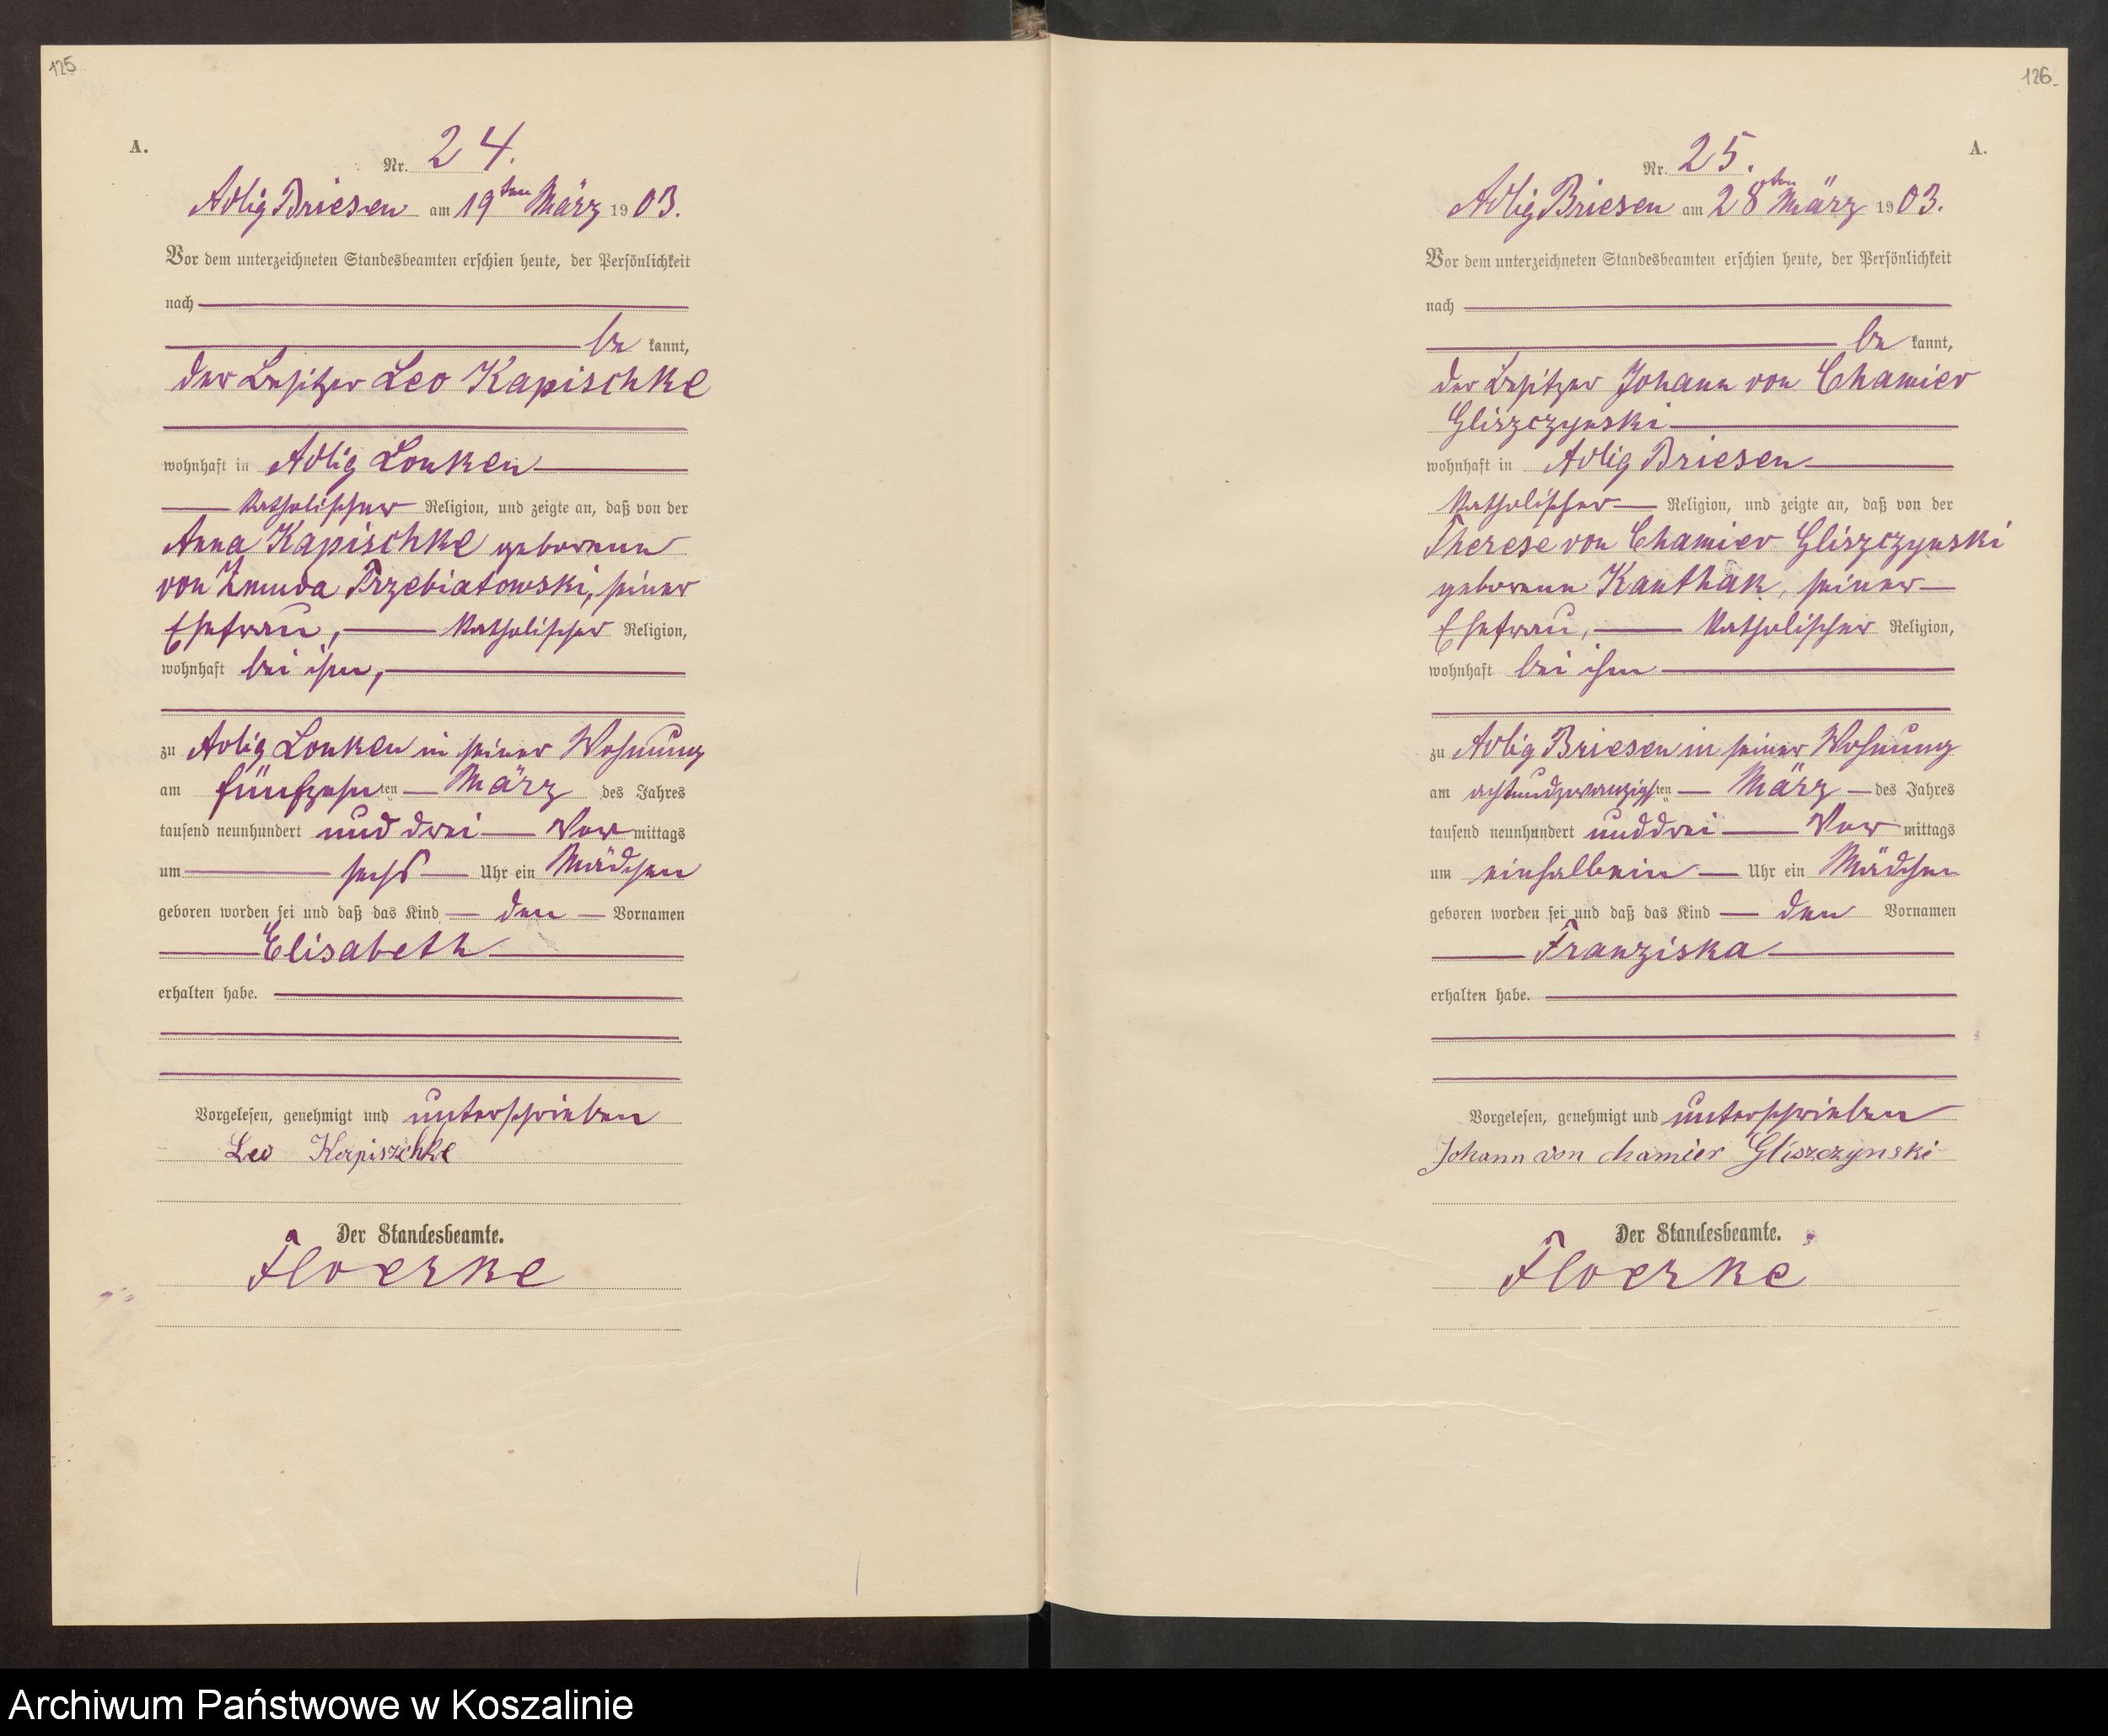 125
A.
Nr. 24.
Adlig Briesen am 19ten März 1903.
Vor dem unterzeichneten Standesbeamten erschien heute, der Persönlichkeit
nach
be kannt,
der Besitzer Leo Kapischke
wohnhaft in Adlig Lonken
katholischer Religion, und zeigte an, daß von der
Anna Kapischke geborenen
von Zmuda Trzebiatowski, seiner
Ehefrau, katholischer Religion,
wohnhaft bei ihm,
zu Adlig Lonken in seiner Wohnung
am fünfzehnten März des Jahres
tausend neunhundert und drei Vor mittags
um sechs Uhr ein Mädchen
geboren worden sei und daß das Kind den Vornamen
Elisabeth
erhalten habe.
Vorgelesen, genehmigt und unterschrieben
Leo Kapiszchke
Der Standesbeamte.
Floerke
126
A.
Nr. 25.
Adlig Briesen am 28ten März 1903.
Vor dem unterzeichneten Standesbeamten erschien heute, der Persönlichkeit
nach
be kannt,
der Besitzer Johann von Chamier
Gliszczynski
wohnhaft in Adlig Briesen
katholischer Religion, und zeigte an, daß von der
Therese von Chamier Gliszczynski
geborenen Kanthak, seiner
Ehefrau, katholischer Religion,
wohnhaft bei ihm
zu Adlig Briesen in seiner Wohnung
am achtundzwanzigsten März des Jahres
tausend neunhundert und drei Vor mittags
um einhalbein Uhr ein Mädchen
geboren worden sei und daß das Kind den Vornamen
Franziska
erhalten habe.
Vorgelesen, genehmigt und unterschrieben
Johann von chamier Gliszczynski
Der Standesbeamte.
Floerke
Archiwum Państwowe w Koszalinie